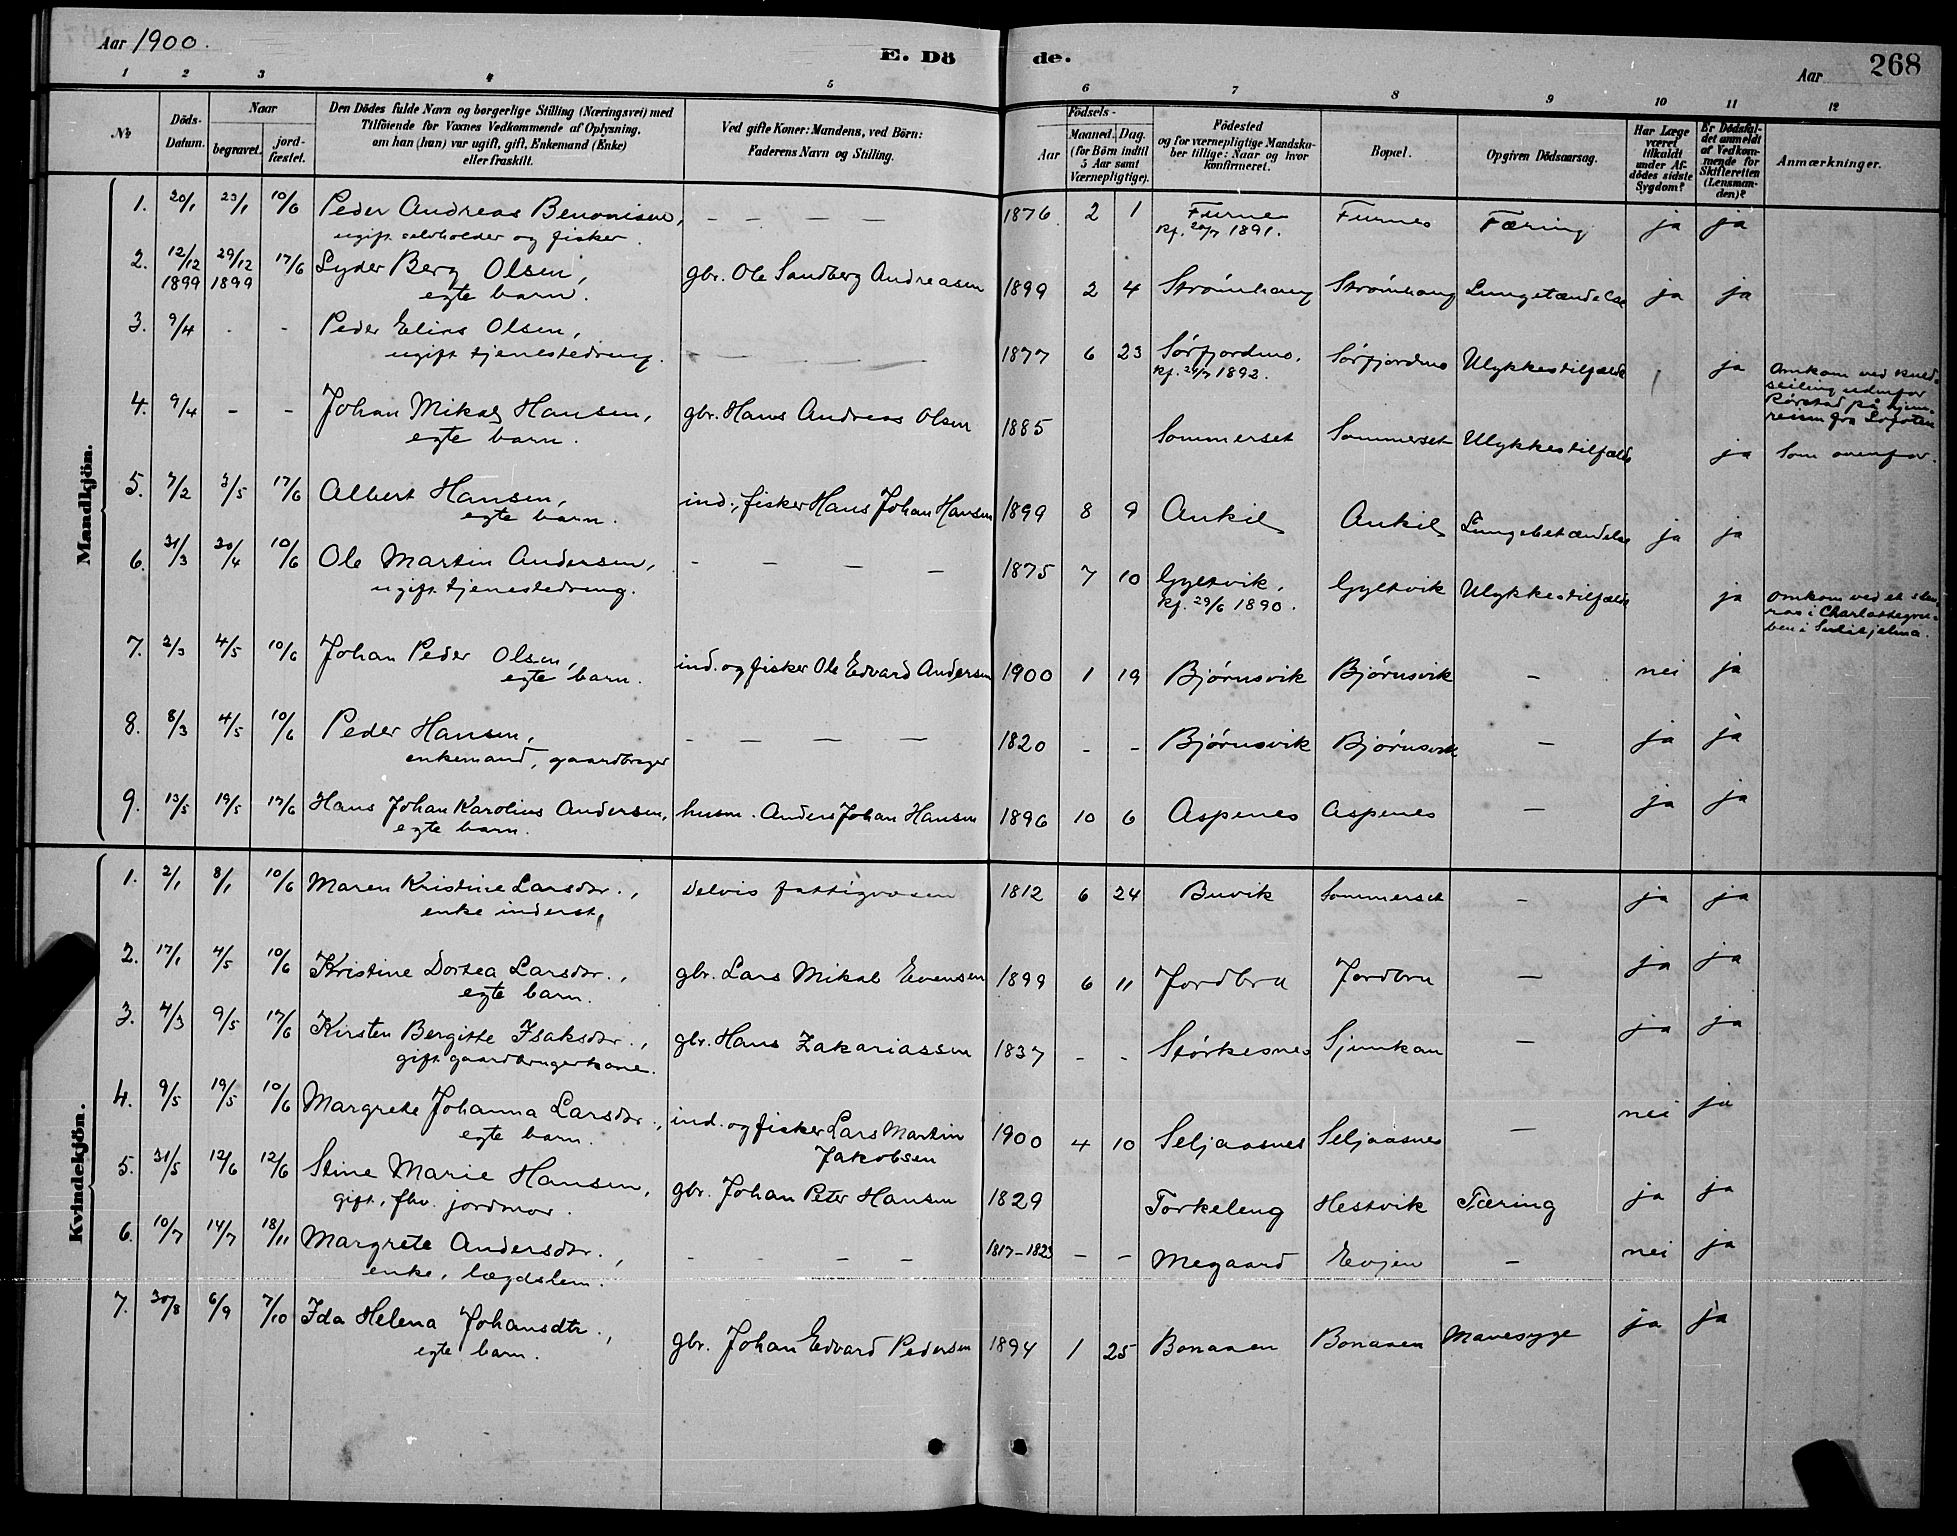 Aar 1900.
E. Dö de.
Aar 268
1 2 3 4 5 6 7 8 9 10 11 12
No
Döds-Datum.
Naar
begravet.
jord-fæstet.
Den Dödes fulde Navn og borgerlige Stilling (Næringsvei) med
Tilföiende for Voxnes Vedkommende af Oplysning,
om han (hun) var ugift, gift, Enkemand (Enke)
eller fraskilt.
Ved gifte Koner: Mandens, ved Börn:
Faderens Navn og Stilling.
Födsels-
Aar
Maaned. Dag.
(for Börn indtil
5 Aar samt
Værnepligtige).
Födested
og for værnepligtige Mandska-
ber tillige: Naar og hvor
konfirmeret.
Bopæl.
Opgiven Dödsaarsag.
Har Læge
været
tilkaldt
under Af-
dödes sidste
Sygdom?
Er Dödsfal-
det anmeldt
af Vedkom-
mende for
Skifteretten
(Lensman-
den)?
Anmærkninger.
Mandkjön.
1. 20/1 23/1 10/6 Peder Andreas Benonisen, — — — — 1876 2 1 Furnes Furnes Tæring ja ja
ugift selvholder og fisker. kf. 20/7 1891.
2. 12/12 29/12 17/6 Lyder Berg Olsen, gbr. Ole Sandberg Andreasen 1899 2 4 Strømhaug Strømhaug ja ja
1899 1899 egte barn.
3. 9/4 - - Peder Elias Olsen, — — — 1877 6 23 Sørfjordmo. Sørfjordmo Ulykkestilfælde ja
ugift tjenestedreng. kf. 24/7 1892.
Omkom ved kuld-
seiling udenfor
Rørstad på hjem-
reisen fra Lofoten
4. 9/4 - - Johan Mikal Hansen, gbr. Hans Andreas Olsen 1885 Sommerset Sommerset Ulykkestilfælde ja Som ovenfor.
egte barn.
5. 7/2 3/5 17/6 Albert Hansen, ind., fisker Hans Johan Hansen 1899 8 9 Ankil Ankil Lungebetændelse ja ja
egte barn.
6. 31/3 20/4 10/6 Ole Martin Andersen, - — — — 1875 7 10 Gyltvik. Gyltvik Ulykkestilfælde ja
ugift tjenestedreng. kf. 29/6 1890.
omkom ved et sten-
ras i Charlottegru-
ben i Sulitjelma.
7. 2/3 4/5 10/6 Johan Peder Olsen, ind. og fisker Ole Edvard Andersen 1900 1 19 Bjørnsvik Bjørnsvik — nei ja
egte barn.
8. 8/3 4/5 10/6 Peder Hansen, — — — — 1820 - - Bjørnsvik Bjørnsvik — ja ja
enkemand, gaardbruger
9. 13/5 19/5 17/6 Hans Johan Karolius Andersen, husm. Anders Johan Hansen 1896 10 6 Aspenes Aspenes — ja ja
egte barn.
Kvindekjön.
1. 2/1 8/1 10/6 Maren Kristine Larsdtr., Delvis fattigvæsen 1812 6 24 Buvik Sommerset — ja ja
enke inderst,
2. 17/1 4/5 10/6 Kristine Dortea Larsdtr., gbr. Lars Mikal Evensen 1899 6 11 Jordbru Jordbru — ja ja
egte barn.
3. 4/3 9/5 17/6 Kirsten Bergitte Isaksdtr., gbr. Hans Zakariassen 1837 - - Størkesnes Sjunkan — ja ja
gift gaardbrugerkone.
4. 9/5 19/5 10/6 Margrete Johanna Larsdtr., ind. og fisker Lars Martin 1900 4 10 Seljaasnes Seljaasnes — nei ja
egte barn. Jakobsen
5. 31/5 12/6 12/6 Stine Marie Hansen, gbr. Johan Peter Hansen 1829 Torkeleng Hestvik Tæring ja ja
gift, fhv. jordmor.
6. 10/7 14/7 18/11 Margrete Andersdtr., - - — — 1817-1823 — — Megaard Evjen — nei ja
enke, lægdslem.
7. 30/8 6/9 7/10 Ida Helena Johansdtr., gbr. Johan Edvard Pedersen 1894 1 25 Bonaasen Bonaasen Mavesyge ja ja
egte barn.